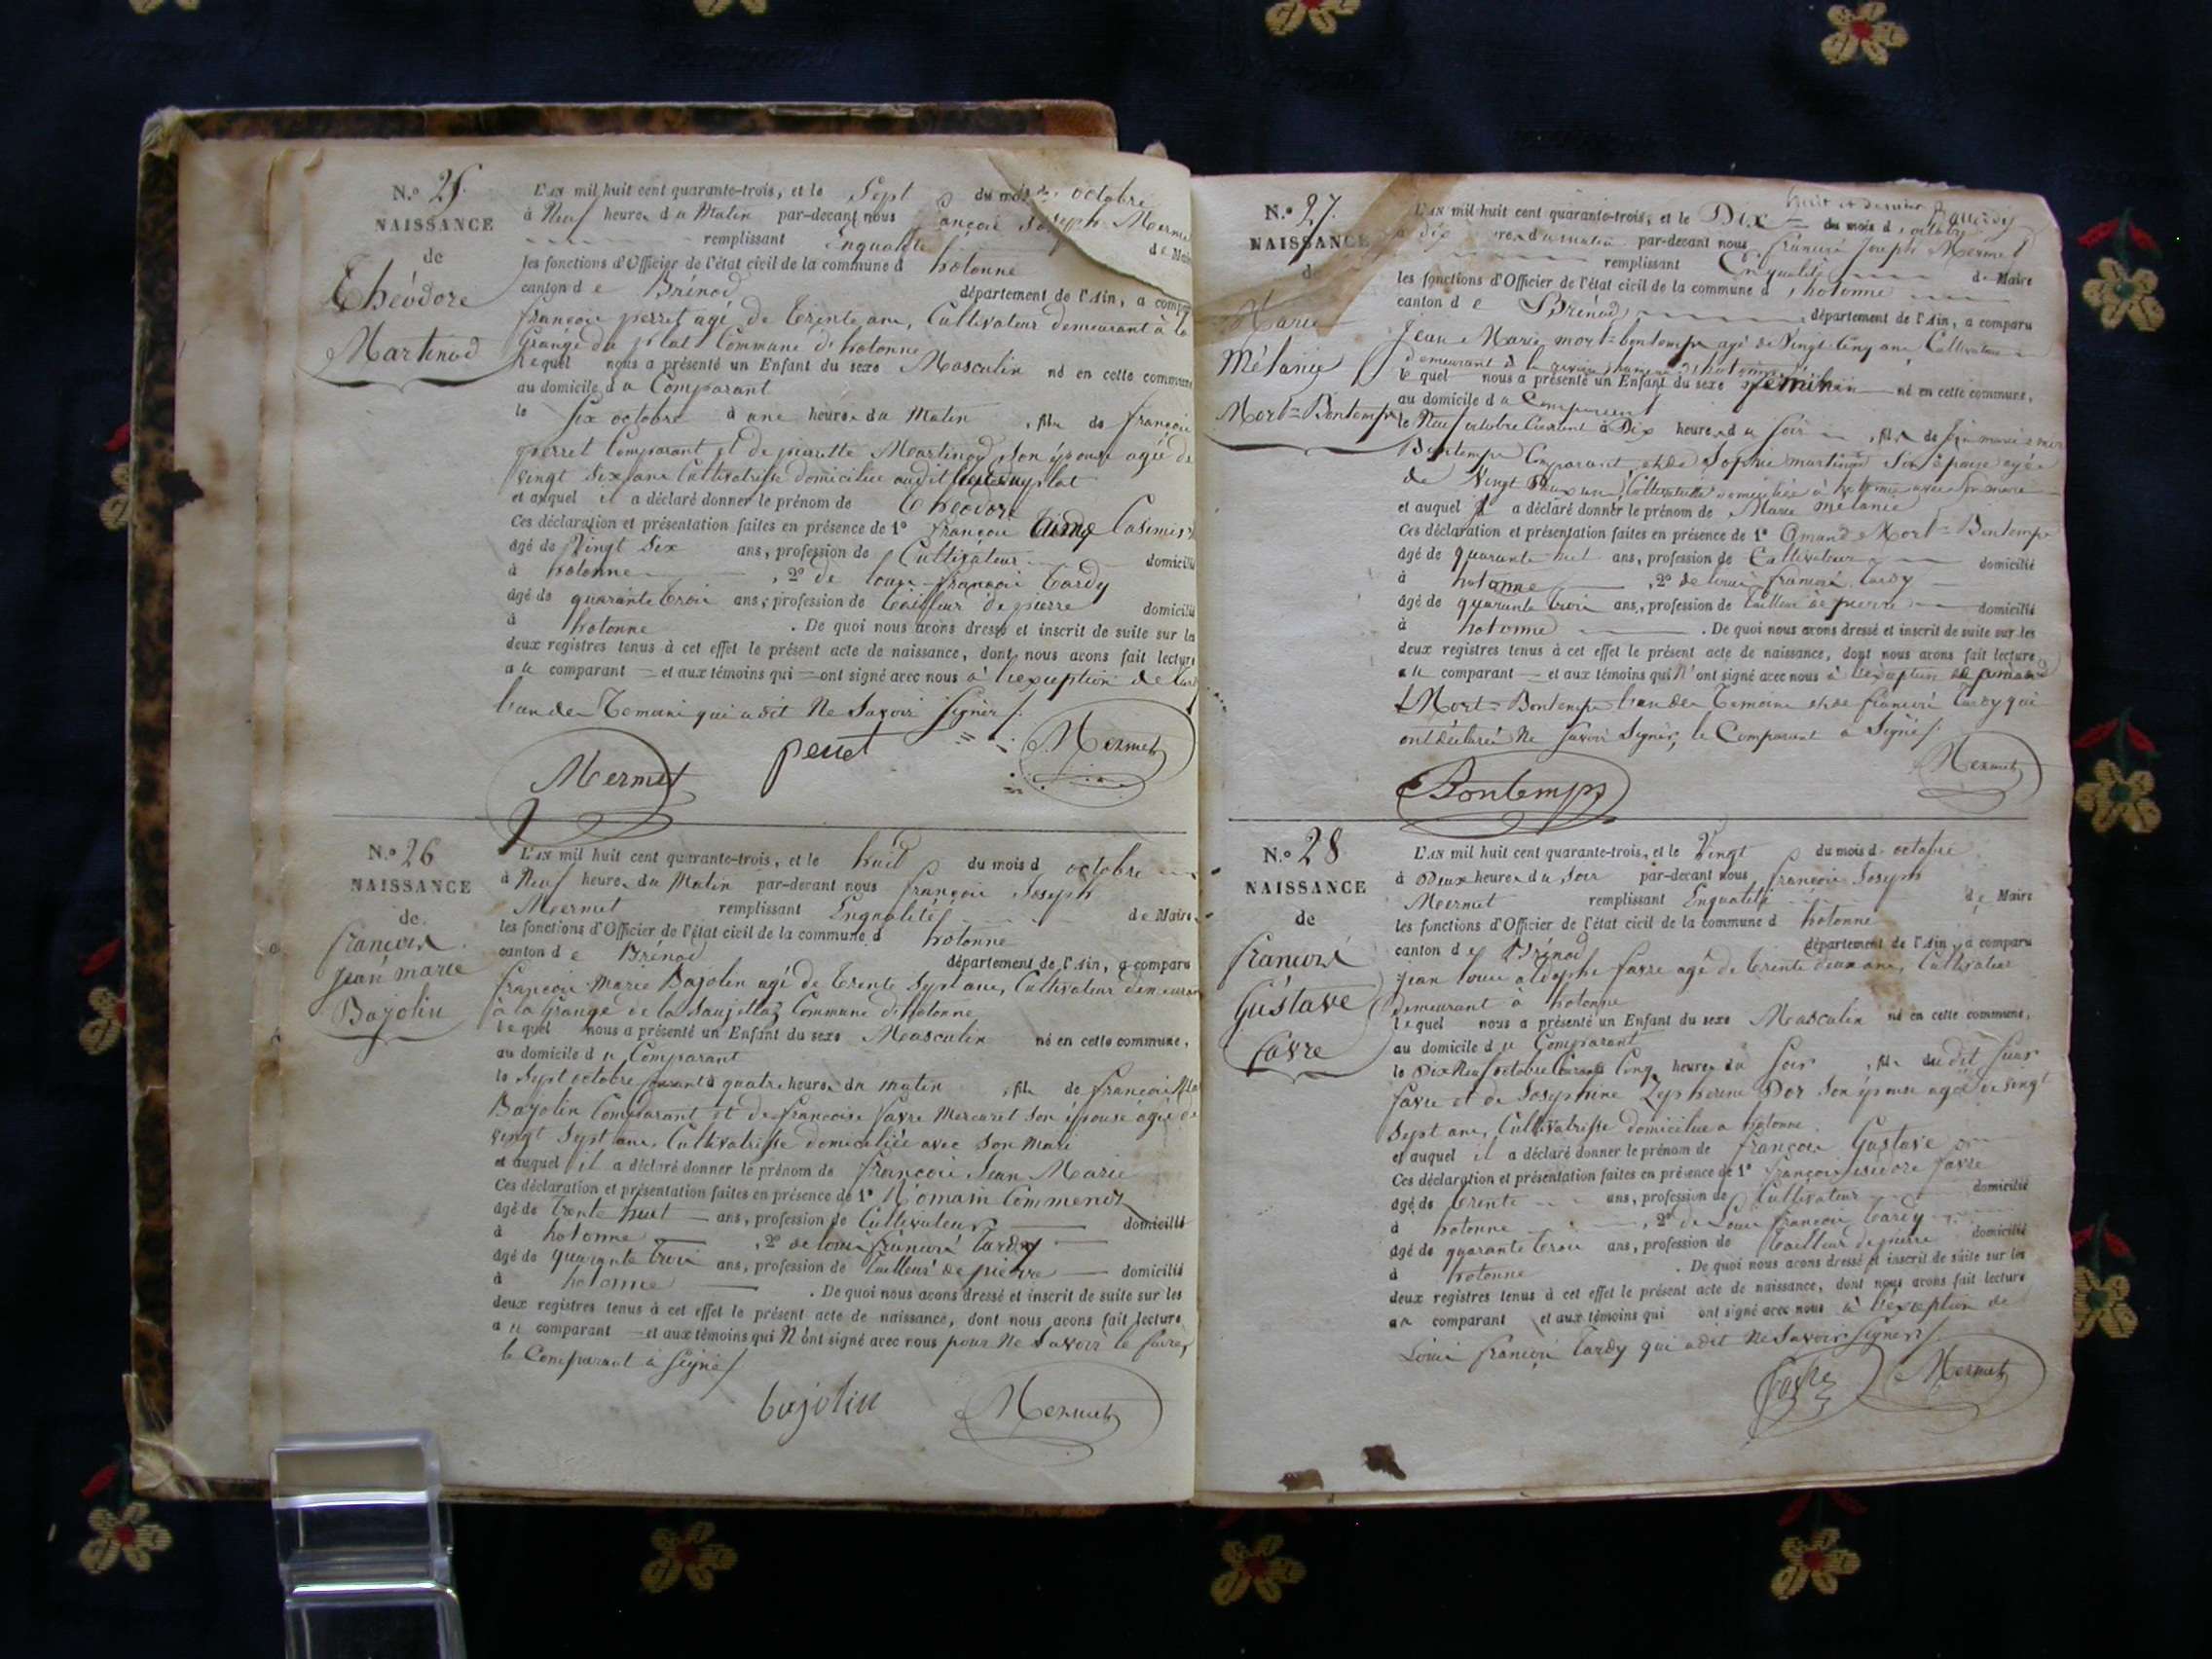 N.o 25.
NAISSANCE
de
Théodore
Martinod
L'AN mil huit cent quarante-trois, et le Sept du mois de octobre
à Neuf heures du Matin par-devant nous ançois Joseph Merme
remplissant Enqualité de Mair
les fonctions d'Officier de l'état civil de la commune d hotonne
canton d e Brénod département de l'Ain, a compa
françois perret agé de trente ans, Cultivateur demeurant à la
Grange du plat Commune d'hotonne
lequel nous a présenté un Enfant du sexe Masculin né en cette commune
au domicile d u Comparant
le Six octobre à une heures du Matin , fils de françois
perret Comparant et de pierrette Martinod son épouse agée de
vingt six ans Cultivatrisse domiciliée audit plat
et auquel il a déclaré donner le prénom de Théodore
Ces déclaration et présentation faites en présence de 1o françois Casimir
âgé de Vingt Six ans, profession de Cultivateur domicilié
à hotonne , 2o de louis françois tardy
âgé de quarante trois ans, profession de tailleur de pierre domicilié
à hotonne . De quoi nous avons dressé et inscrit de suite sur les
deux registres tenus à cet effet le présent acte de naissance, dont nous avons fait lecture
a u comparant et aux témoins qui ont signé avec nous à l'exception de
l'un des Temoins qui a dit Ne Savoir Signer
Mermet perret Mermet
N.o 26
NAISSANCE
de
francois
jean marie
Bajolin
L'AN mil huit cent quarante-trois, et le huit du mois d octobre
à Neuf heures du Matin par-devant nous françois Joseph
Mermet remplissant Enqualité de Maire
les fonctions d'Officier de l'état civil de la commune d hotonne
canton d e Brénod département de l'Ain, a comparu
françois Marie Bajolin agé de trente Sept ans, Cultivateur demeurant
à la Grange de la Commune d'hotonne
lequel nous a présenté un Enfant du sexe Masculin né en cette commune,
au domicile d u Comparant
le Sept octobre Courant à quatre heures du matin , fils de françois
Bajolin Comparant et de françoise favre Mercuret Son épouse agée de
vingt Sept ans, Cultivatrisse domiciliée avec Son Mari
et auquel il a déclaré donner le prénom de françois Jean Marie
Ces déclaration et présentation faites en présence de 1o Romain
âgé de trente huit ans, profession de Cultivateur domicilié
à hotonne , 2o de louis françois tardy
âgé de quarante trois ans, profession de tailleur de pierre domicilié
à hotonne . De quoi nous avons dressé et inscrit de suite sur les
deux registres tenus à cet effet le présent acte de naissance, dont nous avons fait lecture
a u comparant et aux témoins qui N'ont signé avec nous pour Ne Savoir le faire,
le Comparant à Signé
bajolin Mermet
N.o 27.
NAISSANCE
de
Marie
Mélanie
Mort=Bontemps
L'AN mil huit cent quarante-trois, et le Dix du mois d octobre
à dix heures du matin par-devant nous françois Joseph Mermet
remplissant Enqualité de Maire
les fonctions d'Officier de l'état civil de la commune d hotonne
canton d e Brénod département de l'Ain, a comparu
Jean Marie mort=bontemps agé de Vingt Cinq ans, Cultivateur
demeurant à
lequel nous a présenté un Enfant du sexe feminin né en cette commune,
au domicile d u Comparant
le Neuf octobre Courant à Dix heures du Soir , fil de Jean marie mort
Bontemps Comparant, et de Sophie martinod Son épouse agée
de Vingt Deux ans, Cultivatrisse domiciliée à hotonne avec Son mari
et auquel il a déclaré donner le prénom de Marie mélanie
Ces déclaration et présentation faites en présence de 1o Amand Mort=Bontemps
âgé de quarante huit ans, profession de Cultivateur domicilié
à hotonne , 2o de louis françois tardy
âgé de quarante trois ans, profession de tailleur de pierre domicilié
à hotonne . De quoi nous avons dressé et inscrit de suite sur les
deux registres tenus à cet effet le présent acte de naissance, dont nous avons fait lecture
a u comparant et aux témoins qui N'ont signé avec nous à l'exception
Mort=Bontemps l'un des Temoins et de françois tardy qui
ont déclaré Ne Savoir Signer, le Comparant a Signé
Bontemps Mermet
N.o 28
NAISSANCE
de
francois
Gustave
favre
L'AN mil huit cent quarante-trois, et le Vingt du mois d octobre
à Deux heures du Soir par-devant nous françois Joseph
Mermet remplissant Enqualité de Maire
les fonctions d'Officier de l'état civil de la commune d hotonne
canton d e Brénod département de l'Ain, a comparu
jean louis adolphe favre agé de trente deux ans, Cultivateur
demeurant à hotonne
lequel nous a présenté un Enfant du sexe Masculin né en cette commune,
au domicile d u Comparant
le Dix Neuf octobre Courant à Cinq heures du Soir , fils du dit
favre et de Josephine Zepherine Dor Son épouse agée de vingt
Sept ans, Cultivatrisse domiciliée a hotonne
et auquel il a déclaré donner le prénom de françois Gustave
Ces déclaration et présentation faites en présence de 1o françois isidore favre
âgé de trente ans, profession de Cultivateur domicilié
à hotonne , 2o de Louis françois tardy
âgé de quarante trois ans, profession de tailleur de pierre domicilié
à hotonne . De quoi nous avons dressé et inscrit de suite sur les
deux registres tenus à cet effet le présent acte de naissance, dont nous avons fait lecture
a u comparant et aux témoins qui ont signé avec nous à l'exception de
Louis françois tardy qui a dit Ne Savoir Signer
favre Mermet